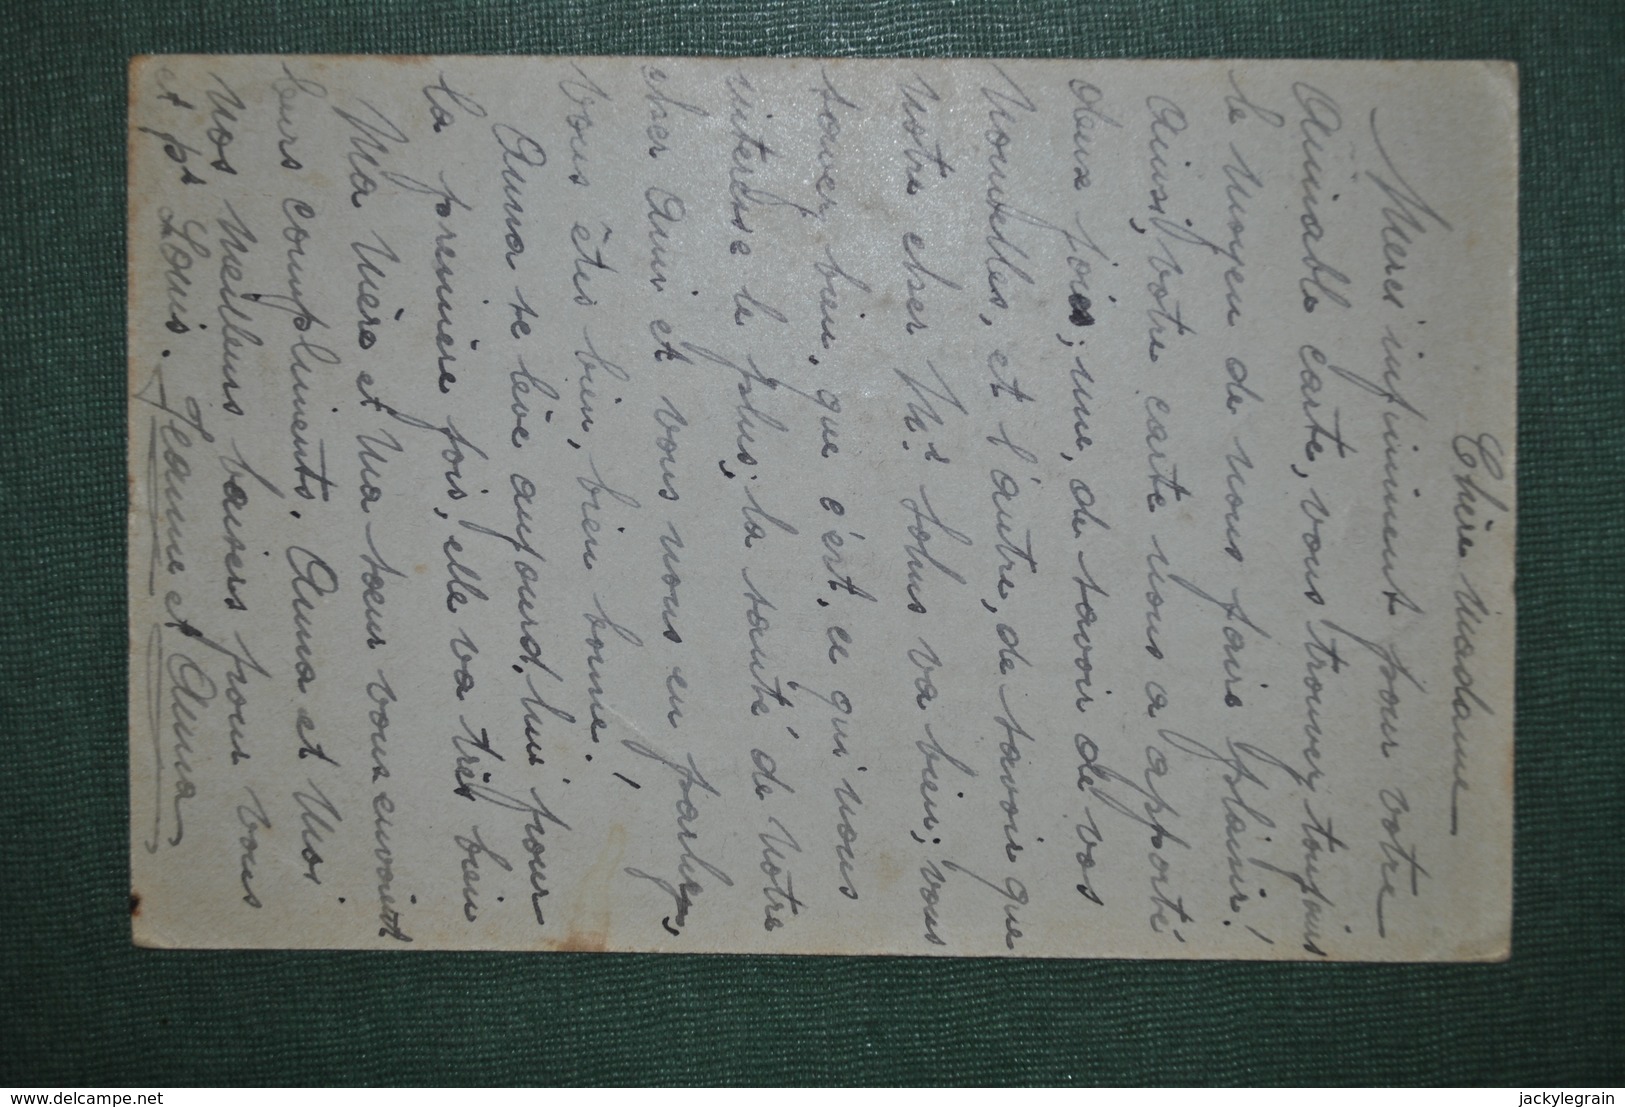 Chère Madame
Merci infiniment pour votre
Aimable carte, vous trouvez toujours
le Moyen de nous faire plaisir!
Ainsi, votre carte nous a apporté
deux joies; une, de savoir de vos
Nouvelles, et l'autre, de savoir que
Notre cher Mr Johns va bien; vous
savez bien, que c'est, ce qui nous
interesse le plus; la santé de Votre
cher Ami et vous nous en parlez,
Vous êtes bien, bien bonne!
Anna se lève aujourd,hui pour
la première fois, elle va très bien
Ma Mère et Ma sœur vous envoient
leurs compliments. Anna et Moi
Nos Meilleurs baisers pour vous
et pr Louis. Jeanne et Anna
delcampe.net
jackylegrain